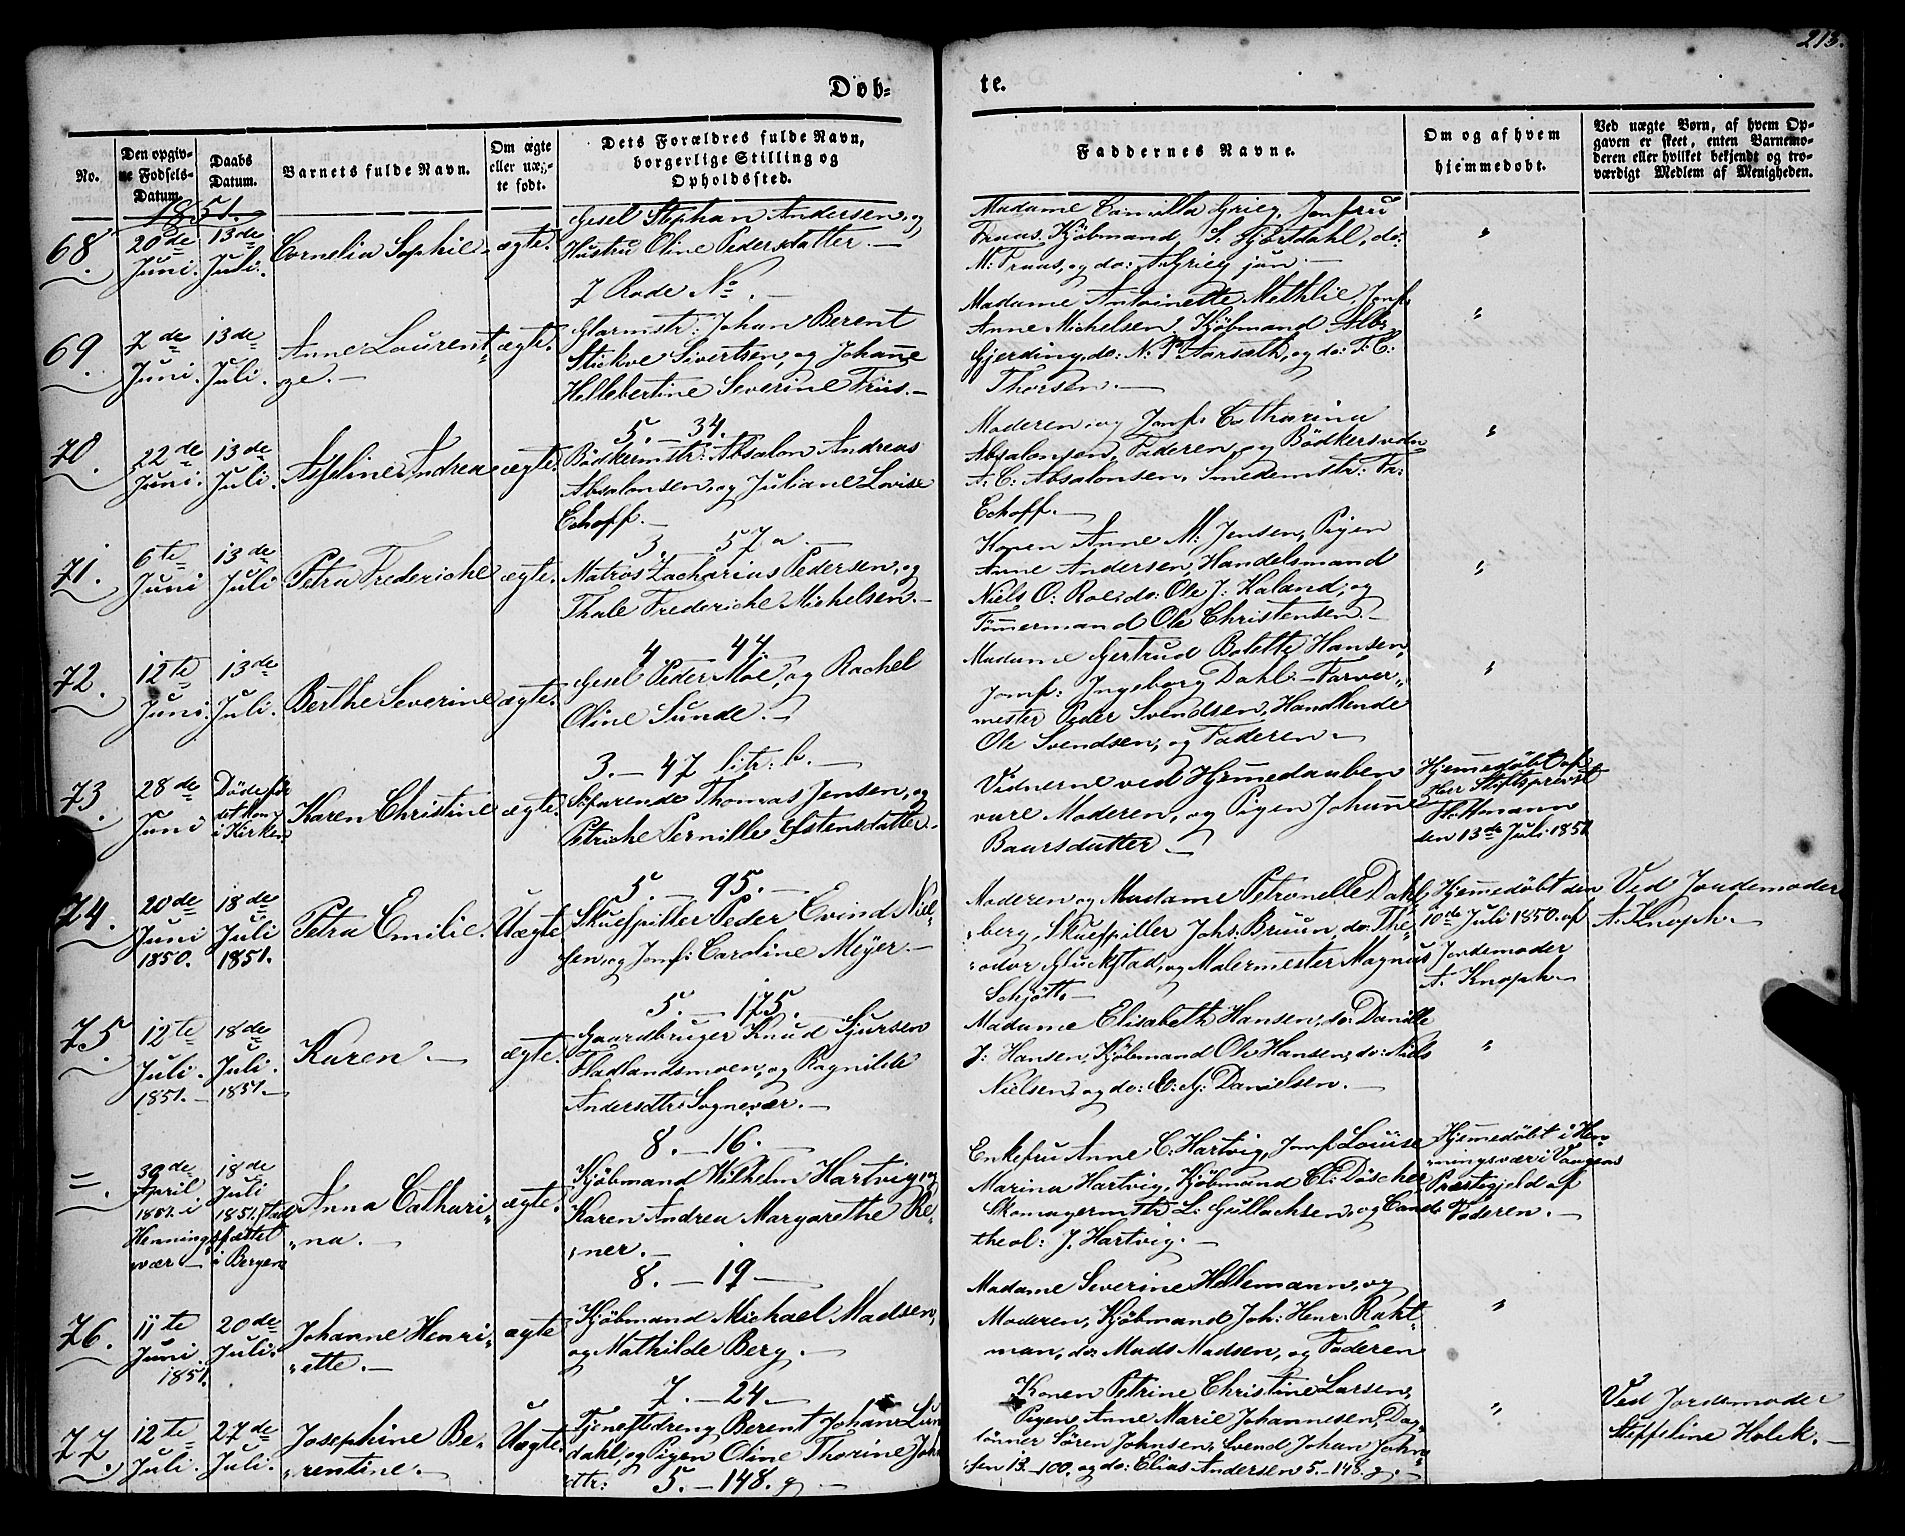 213.
Døb-
te.
No.
Den opgiv-
ne Fødsels-
Datum.
Daabs
Datum.
Barnets fulde Navn.
Om ægte
eller uæg-
te født.
Dets Forældres fulde Navn,
borgerlige Stilling og
Opholdssted.
Faddernes Navne.
Om og af hvem
hjemmedøbt.
Ved uægte Børn, af hvem Op-
gaven er skeet, enten Barnemo-
deren eller hvilket bekjendt og tro-
værdigt Medlem af Menigheden.
1851.
68.
20de
Juni.
13de
Juli.
Cornelia Sophie
ægte.
Gesel Stephan Andersen, og
Hustru Oline Pedersdatter. —
7 Rode No —
Madame Camilla Grieg, Jomfru
Fraas. Kjøbmand S. Hjortdahl, do:
M: Fraas, og do: A. Grieg jun. —
"
69.
2de
Juni.
13de
Juli.
Anne Laurent
ze. —
ægte.
Glarmstr: Johan Berent
Stickve Sivertsen, og Johañe
Hellebertine Severine Friis. —
5. — 34.
Madame Antoinette Methlie, Jomf:
Anne Michelsen. Kjøbmand Albr.
Gjerding, do: N: P. Aarsæth, og do: F: C:
Thorsen. —
"
70.
22de
Juni.
13de
Juli.
Asseline Andrea
ægte.
Bødkermstr: Absalon Andreas
Absalonsen, og Juliane Lovise
Echoff. —
3. 57 a —
Moderen, og Jomf: Catharina
Absalonsen, Faderen, og Bødkersvedn
A: C: Absalonsen, Smedemstr: Fr:
Echoff. —
"
71.
6te
Juni
13de
Juli
Petra Frederiche
ægte.
Matros Zacharias Pedersen, og
Thale Frederiche Michelsen. —
4 44.
Konen Anne M: Jensen, Pigen
Anne Andersen, Handelsmand
Niels O: Roe, do: Ole J: Kaland, og
Tømermand Ole Christensen. —
"
72.
12te
Juni.
13de
Juli.
Berthe Severine
ægte.
Gesel Peder Moe, og Rachel
Oline Sunde. —
3. — 47 litr: b. —
Madame Gertrud Bolette Hansen,
Jomf: Ingeborg Dahl. — Farver-
mester Peder Svendsen, Handlende
Ole Svendsen, og Faderen —
"
73.
28de
Juni
Døde før
det kom
i Kirken.
Karen Christine
ægte.
Søfarende Thomas Jensen, og
Petriche Pernille Østensdatter.
5. — 95. —
Vidnerne ved Hjemedaaben
vare Moderen, og Pigen Johañe
Baarsdatter. —
Hjemedøbt af
Herr Stiftsprovst
den 13de Juli 1851
74.
20de
Juni
1850.
18de
Juli
1851.
Petra Emilie.
Uægte
Skuespiller Peder Evind Niel-
sen, og Jomf: Caroline Meyer. —
5. — 175.
Moderen og Madame Petronelle Dahl-
berg, Skuespiller Johs: Bruun, do: The-
odor Gluckstad, og Malermester Magnus
Schjøtt. —
Hjemedøbt den
10de Juli 1850. af
Jordemoder
A. Knoph. —
Ved Jordemoder
A. Knoph. —
75.
12te
Juli.
1851. —
18de
Juli.
1851. —
Karen. —
ægte.
Gaardbruger Knud Sjursen
Fladlandsmoen, og Ragnilde
Andersdtr: Sognevær. —
8. — 16. —
Madame Elisabeth Hansen, do: Danille
J: Hansen, Kjøbmand Ole Hansen, do: Niels
Nielsen, og do: C: G: Danielsen. —
"
=.
30de
April
1851. i
Hennings-
vær —
18de
Juli
1851. Stad-
fæstet
i Bergen
Anna Cathari-
-na. —
ægte.
Kjøbmand Wilhelm Hartvig, og
Karen Andrea Margarethe Re-
-ner. —
8. — 19 —
Enkefru Anne C. Hartvig, Jomf: Louise
Marina Hartvig, Kjøbmand Cl: Döscher,
Skomagermstr L: Gullachsen, og Cand:
theol: J. Hartvig. —
Hjemedøbt i Hen-
ningsvær i Vaagens
Præstegjeld af
Faderen. —
76.
11te
Juni
1851.
20de
Juli.
Johanne Henri-
-ette. —
ægte
Kjøbmand Michael Madsen,
og Mathilde Berg. —
7. — 24 —
Madame Severine Heltemann, og
Moderen, Kjøbmand Joh: Henr: Raht-
man, do: Mads Madsen, og Faderen
"
77.
12te
Juli.
27de
Juli.
Josephine Be-
-rentine. —
Uægte
Tjenestedreng Berent Johan Lun
dahl, og Pigen Oline Thorine Joh
dtr: 5. — 148. g —
Konen Petrine Christine Larsen,
Pigen Anne Marie Johannesen, Dag-
lønner Søren Johnsen, Svend Johan John-
sen 13 — 100. og do: Elias Andersen 5. — 148. g. —
"
Ved Jordemoder
Steffeline Holck. —